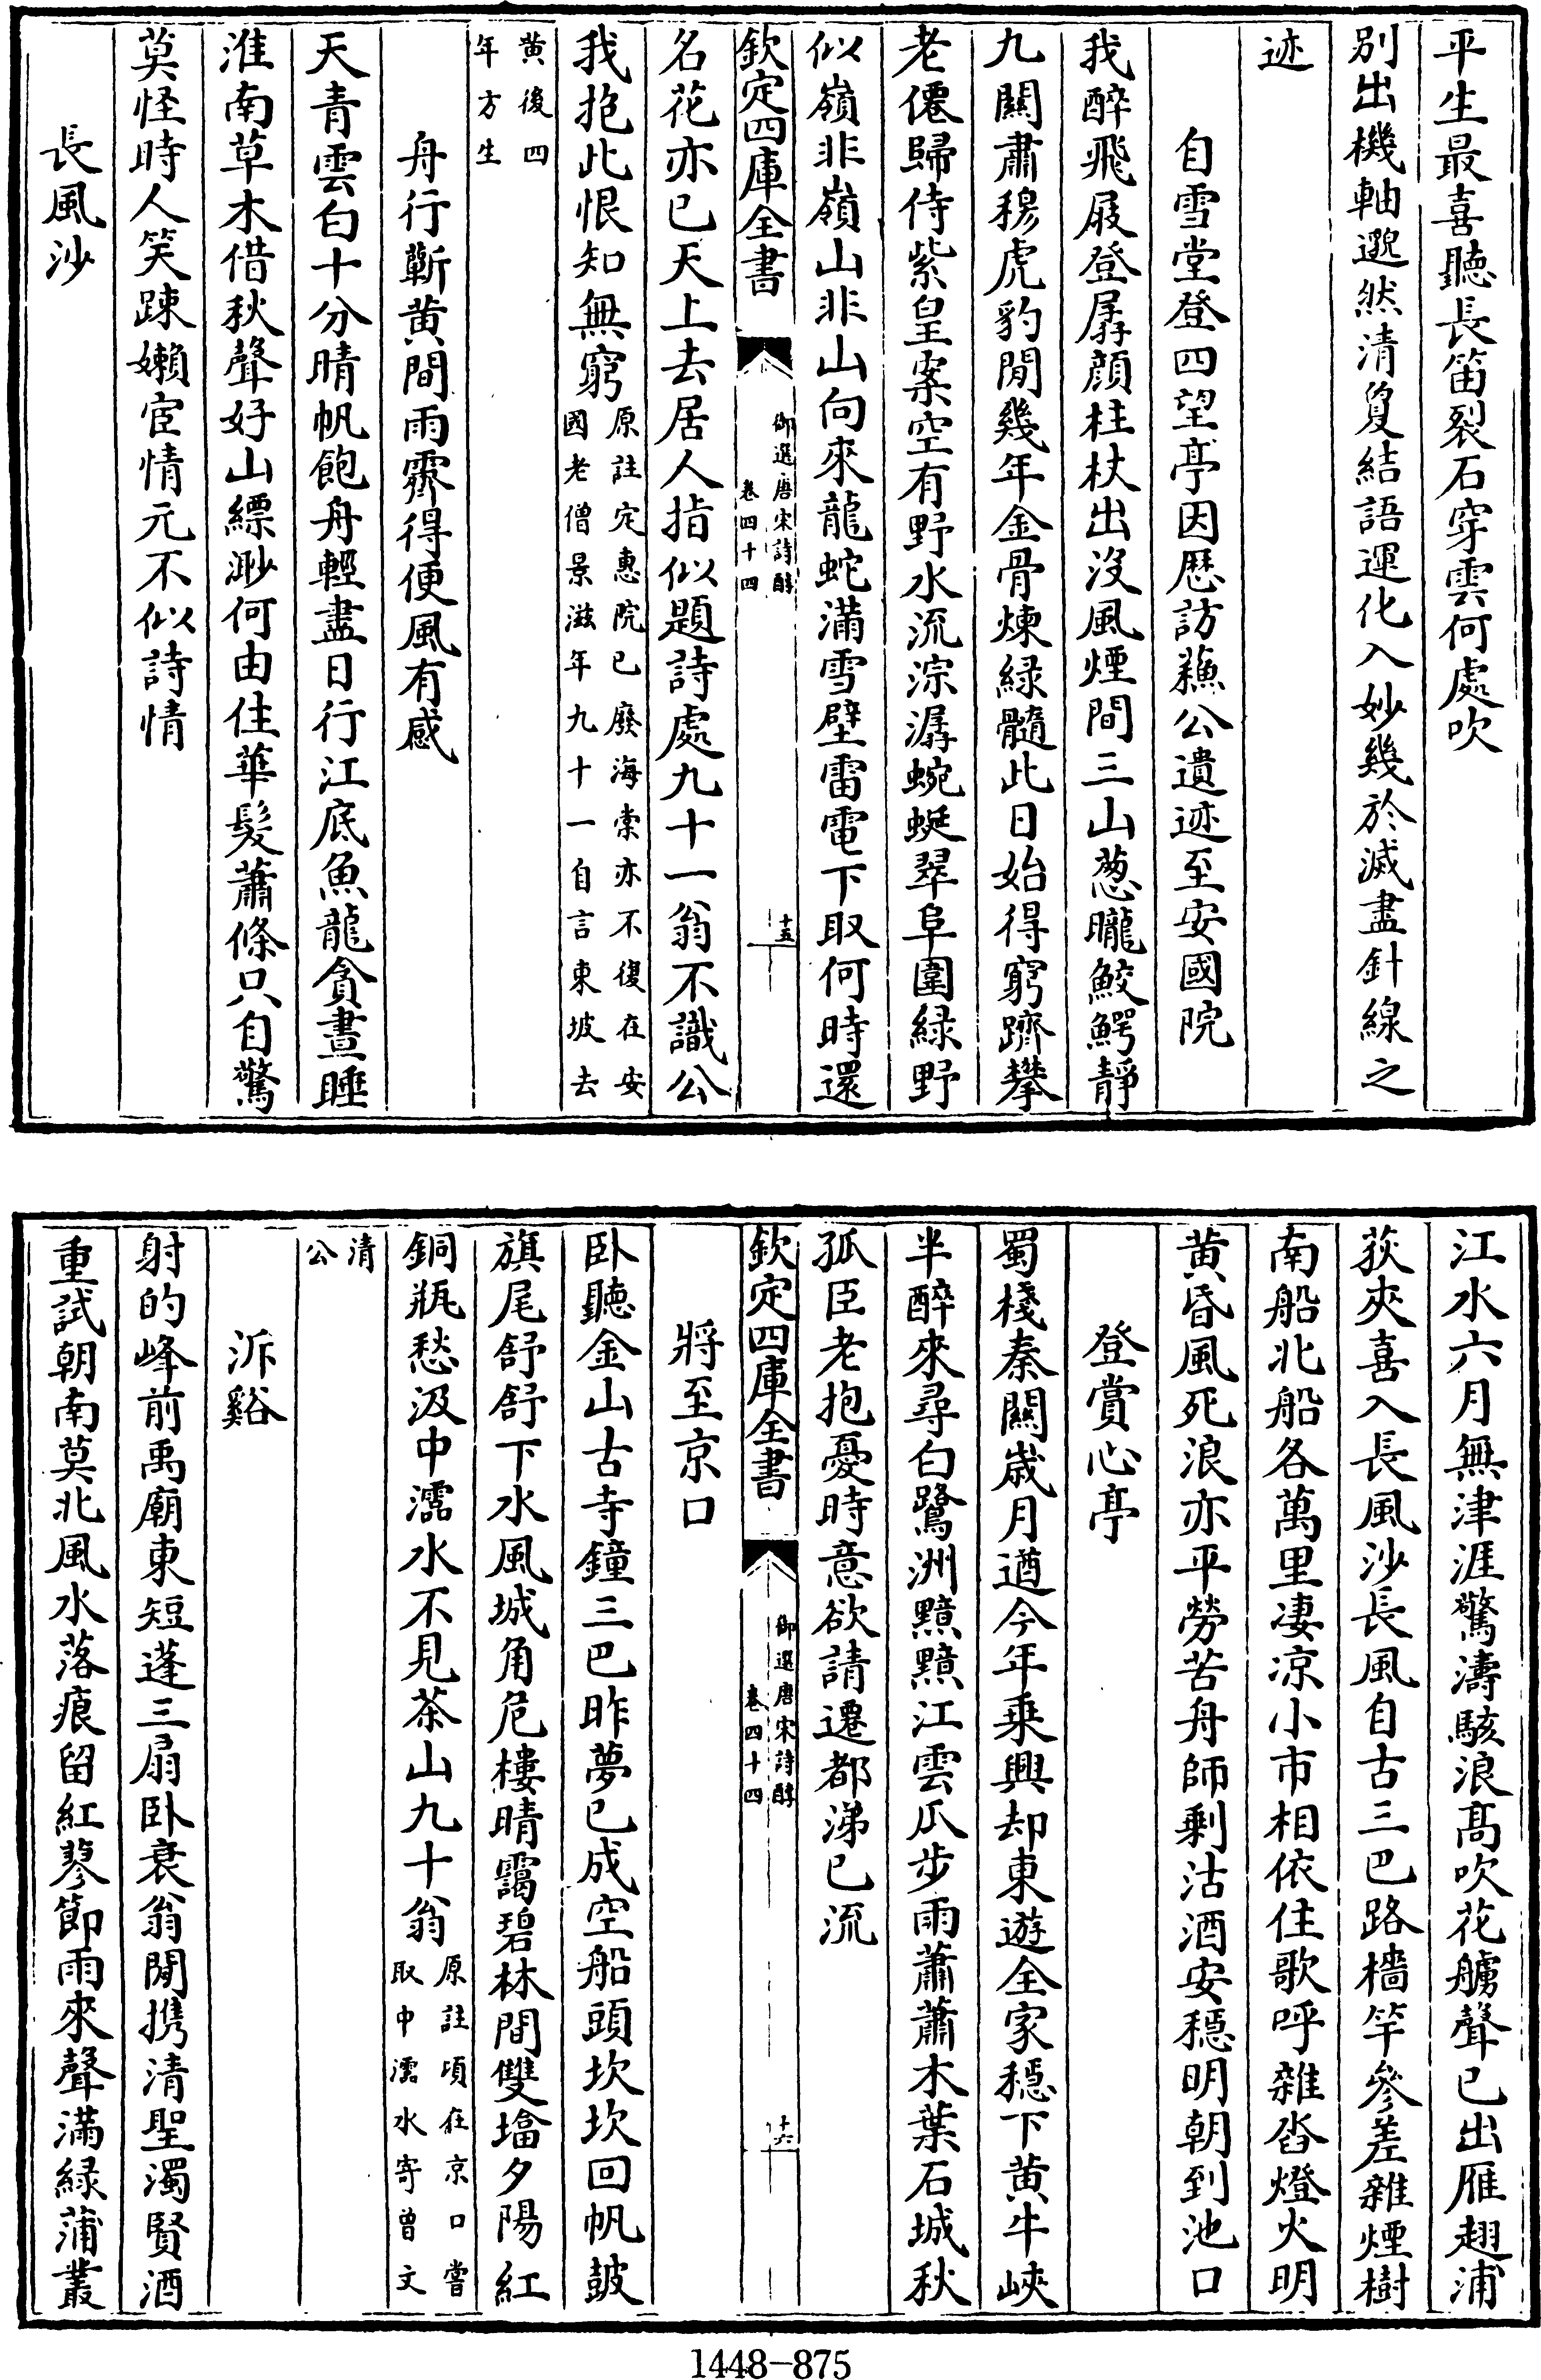 平生最喜聽長笛裂石穿雲何處吹
別出機軸邈然清敻結語運化入妙幾於滅盡針線之
迹
自雪堂登四望亭因歷訪蘓公遺迹至安國院
我醉飛屐登孱顔柱杖出没風煙間三山葱曨鮫鰐靜
九關肅穆虎豹閒幾年金骨煉緑髓此日始得窮躋攀
老僊歸侍紫皇案空有野水流淙潺蜿蜒翠阜圍緑野
似嶺非嶺山非山向來龍蛇滿雪壁雷電下取何時還
欽定四庫全書
御選唐宋詩醇
卷四十四
十五
名花亦已天上去居人指似題詩處九十一翁不識公
我抱此恨知無窮
原註定惠院已廢海棠亦不復在安
國老僧景滋年九十一自言東坡去
黄後四
年方生
舟行蘄黄間雨霽得便風有感
天青雲白十分晴帆飽舟輕盡日行江底魚龍貪晝睡
淮南草木借秋聲好山縹渺何由住華髮蕭條只自驚
莫怪時人笑踈嬾宦情元不似詩情
長風沙
江水六月無津涯驚濤駭浪髙吹花艣聲已出雁翅浦
荻夾喜入長風沙長風自古三巴路檣竿參差雜煙樹
南船北船各萬里凄凉小市相依住歌呼雜沓燈火明
黄昏風死浪亦平勞苦舟師剩沽酒安穏明朝到池口
登賞心亭
蜀棧秦關歳月遒今年乗興却東遊全家穏下黄牛峽
半醉來尋白鷺洲黯黯江雲瓜步雨蕭蕭木葉石城秋
孤臣老抱憂時意欲請遷都涕已流
欽定四庫全書
御選唐宋詩醇
卷四十四
十六
將至京口
卧聽金山古寺鐘三巴昨夢已成空船頭坎坎回帆皷
旗尾舒舒下水風城角危樓晴靄碧林間雙墖夕陽紅
銅瓶愁汲中濡水不見茶山九十翁
原註頃在京口嘗
取中濡水寄曾文
清
公
泝谿
射的峰前禹廟東短蓬三扇卧衰翁閒携清聖濁賢酒
重試朝南莫北風水落痕留紅蓼節雨來聲滿緑蒲叢
1448-875